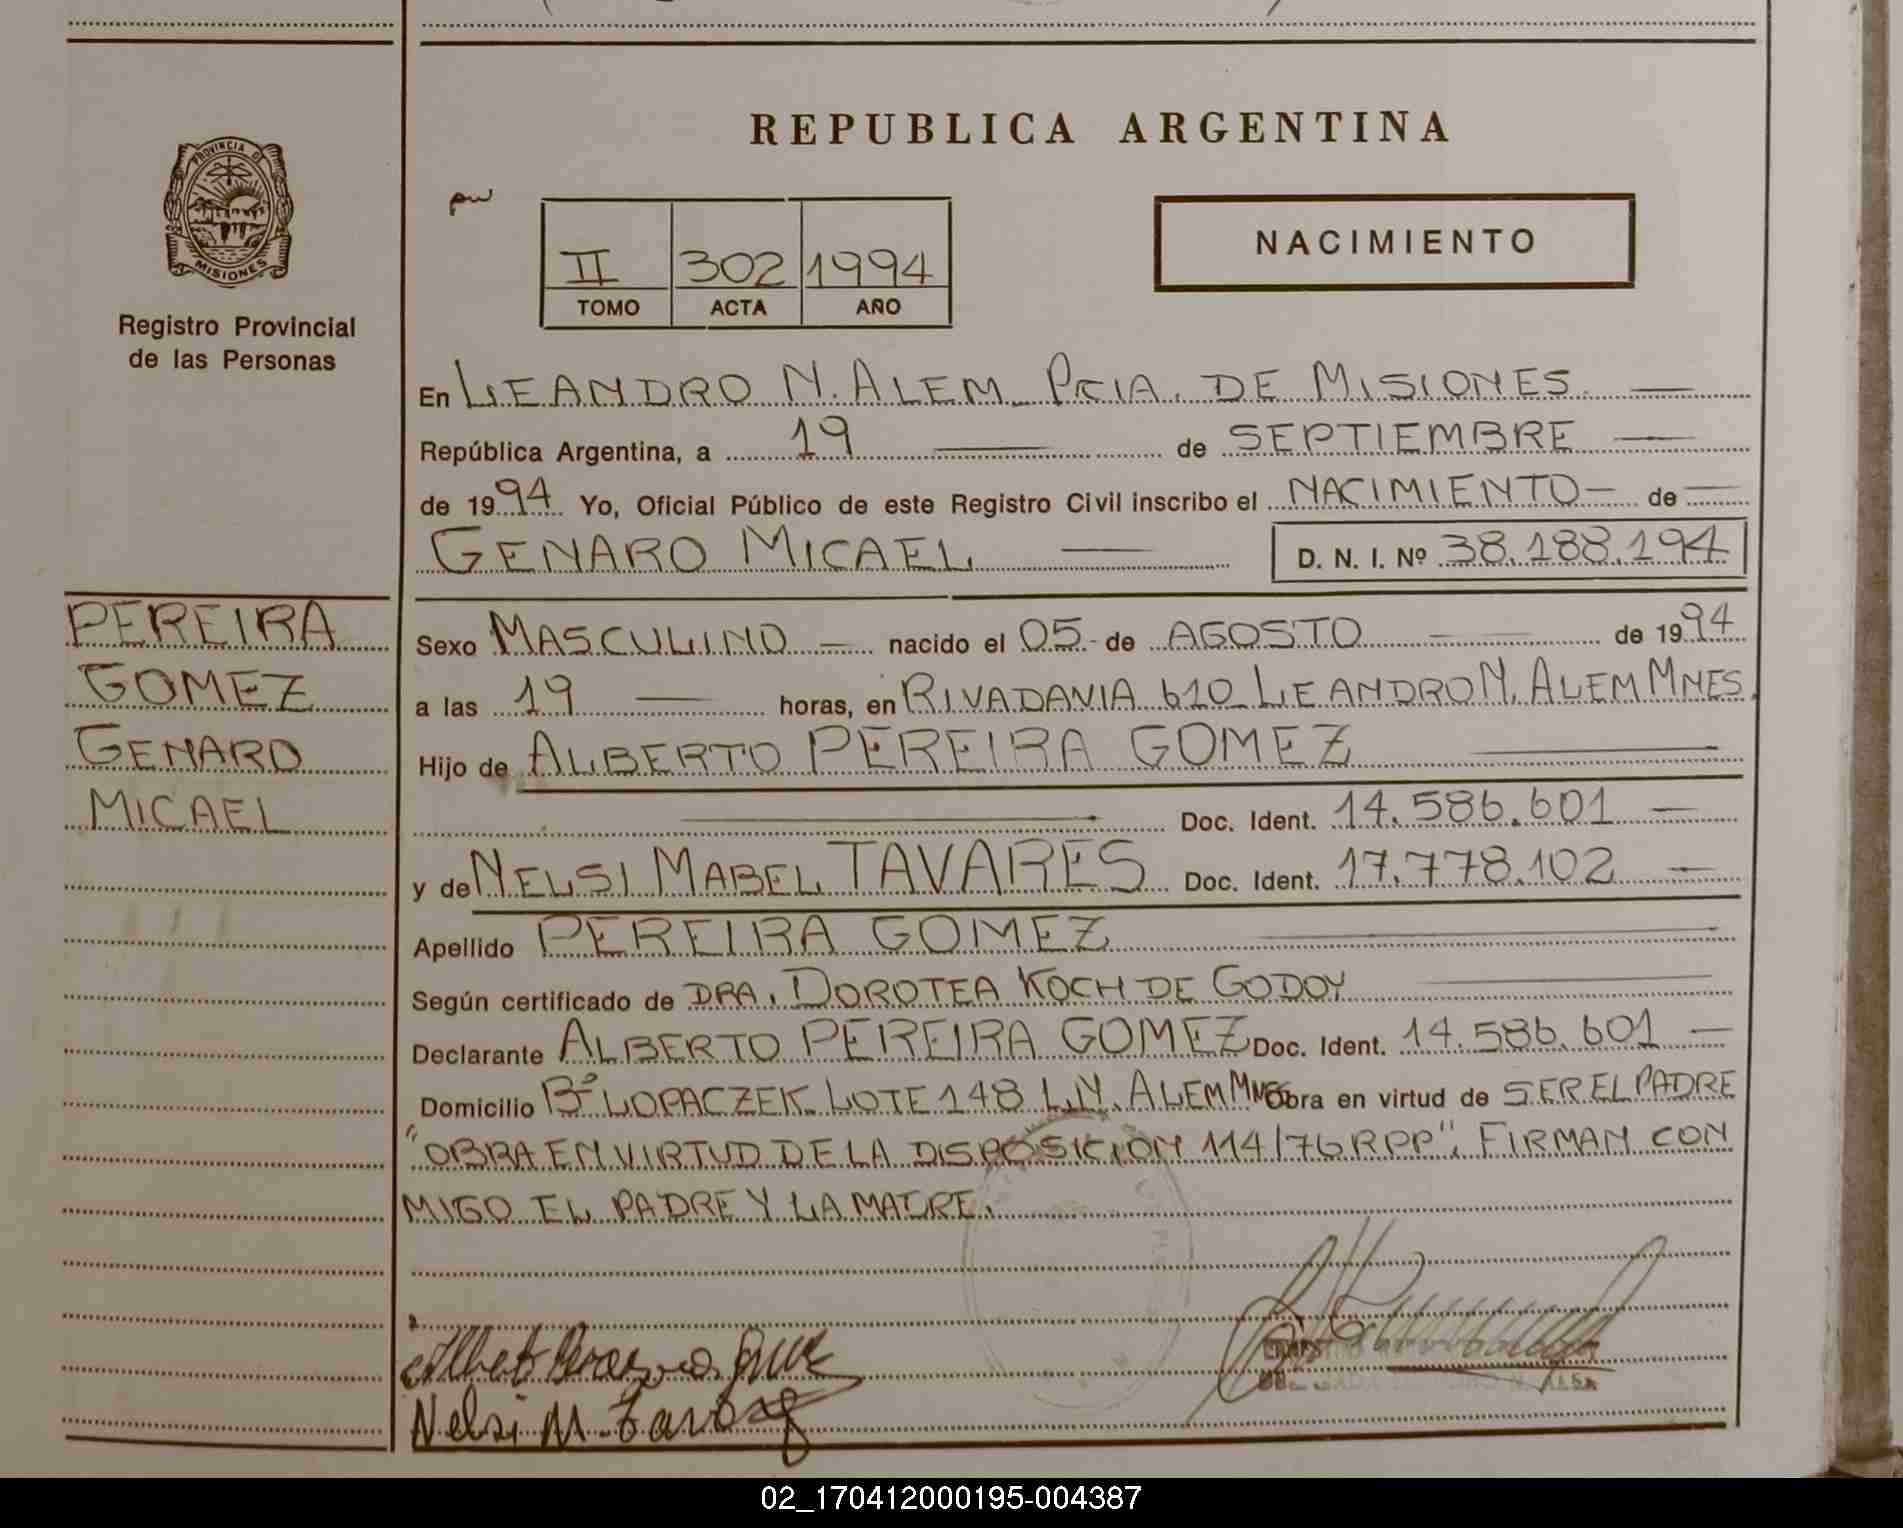 PROVINCIA DE
MISIONES
Registro Provincial
de las Personas
PEREIRA
GOMEZ
GENARO
MICAEL
REPUBLICA ARGENTINA
II 302 1994
TOMO ACTA AÑO
NACIMIENTO
En LEANDRO N. ALEM - PCIA. DE MISIONES. —
República Argentina, a 19 — de SEPTIEMBRE —
de 1994 Yo, Oficial Público de este Registro Civil inscribo el NACIMIENTO — de —
GENARO MICAEL — D. N. I. Nº 38.188.194
Sexo MASCULINO — nacido el 05 - de AGOSTO — de 1994
a las 19 — horas, en RIVADAVIA 610 - LEANDRO N. ALEM MNES.
Hijo de ALBERTO PEREIRA GOMEZ —
— Doc. Ident. 14.586.601 —
y de NELSI MABEL TAVARES Doc. Ident. 17.778.102 —
Apellido PEREIRA GOMEZ —
Según certificado de DRA. DOROTEA KOCH DE GODOY —
Declarante ALBERTO PEREIRA GOMEZ Doc. Ident. 14.586.601 —
Domicilio Bº LOPACZEK LOTE 148 L.N. ALEM MNES Obra en virtud de SER EL PADRE
"OBRA EN VIRTUD DE LA DISPOSICION 114/76 RPP". FIRMAN CON
MIGO EL PADRE Y LA MADRE.
Nelsi M. Tavarez
02_170412000195-004387